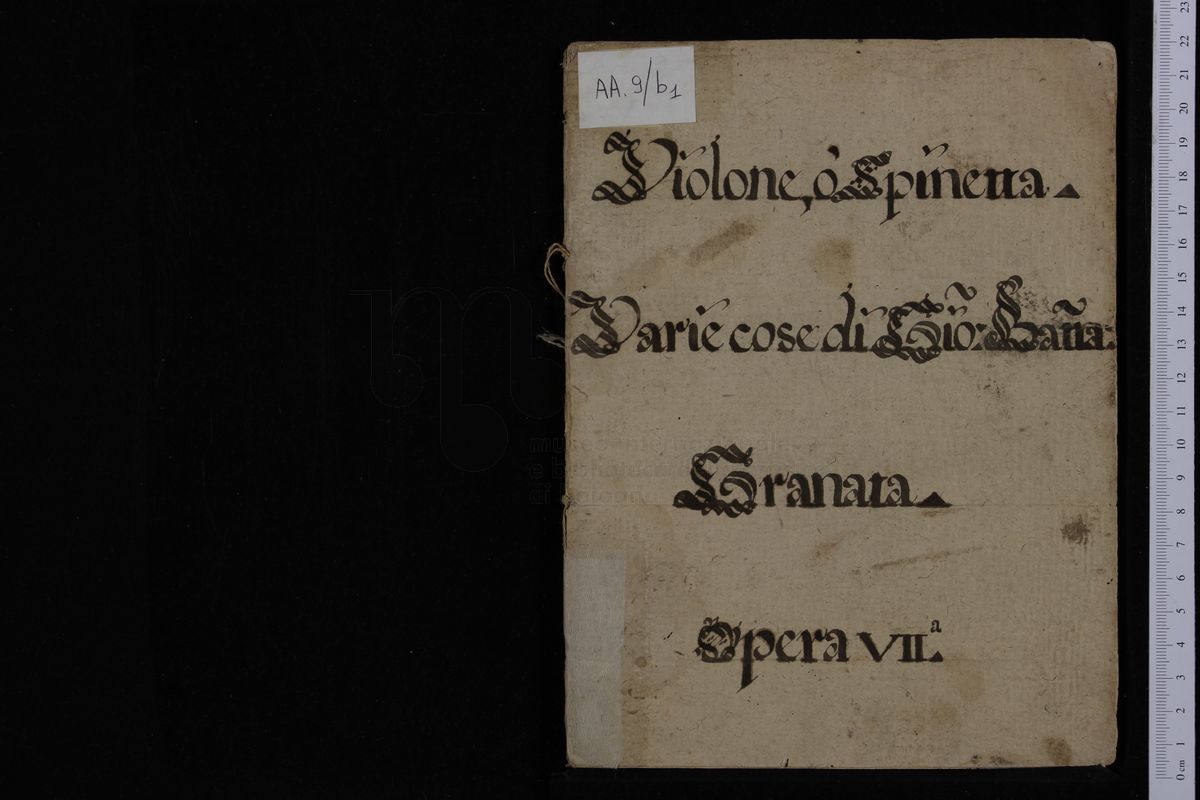 AA. 9/b1
Violone, ò Spinetta
Varie cose di Gio: Batta:
Granata
Opera VII.a
museo internazionale
e biblioteca
di bologna
0 cm 1 2 3 4 5 6 7 8 9 10 11 12 13 14 15 16 17 18 19 20 21 22 23